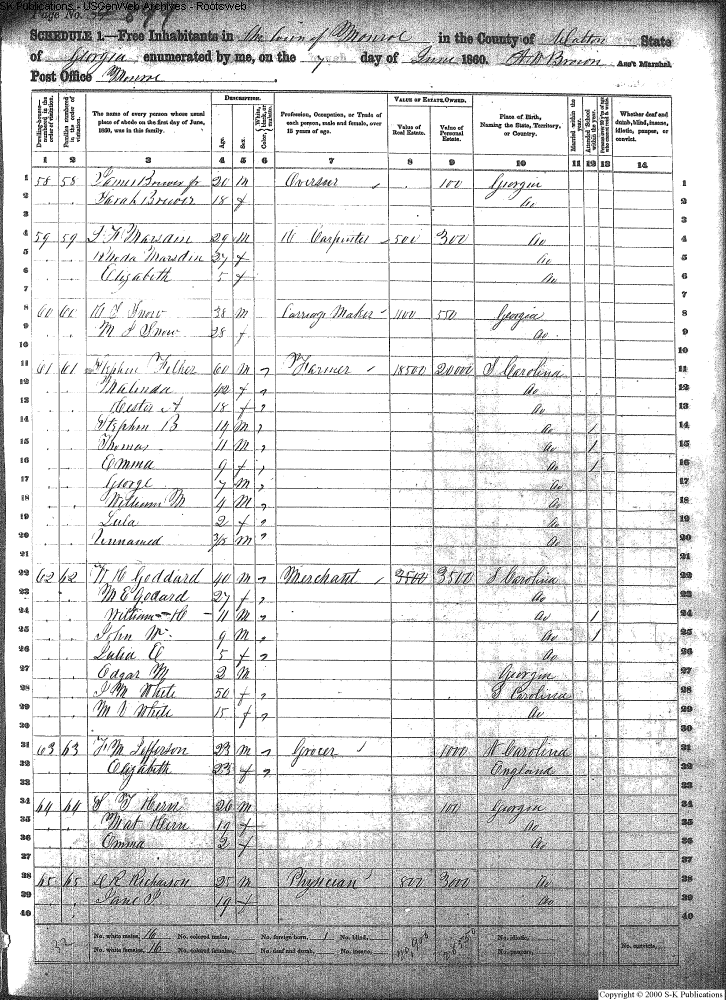 S-K Publications - USGenWeb Archives - Rootsweb
Page No.
SCHEDULE 1.—Free Inhabitants in the town of Monroe in the County of Walton State
of Georgia enumerated by me, on the 7 day of June 1860. Ass't Marshal.
Post Office Monroe
Dwelling-houses—numbered in the order of visitation.
Families numbered in the order of visitation.
The name of every person whose usual place of abode on the first day of June, 1860, was in this family.
DESCRIPTION.
Age.
Sex.
Color, White, black, or mulatto.
Profession, Occupation, or Trade of each person, male and female, over 15 years of age.
VALUE OF ESTATE OWNED.
Value of Real Estate.
Value of Personal Estate.
Place of Birth, Naming the State, Territory, or Country.
Married within the year.
Attended School within the year.
Whether deaf and dumb, blind, insane, idiotic, pauper, or convict.
1 2 3 4 5 6 7 8 9 10 11 12 13 14
1 58 58 20 m Overseer 100 Georgia 1
2 Sarah 18 f Do 2
3 3
4 59 59 Marsden 29 m Carpenter 500 300 Do 4
5 Marsden 27 f Do 5
6 Elizabeth 5 f Do 6
7 7
8 60 60 Snow 38 m Carriage Maker 1100 550 Georgia 8
9 Snow 28 f Do 9
10 10
11 61 61 Stephen Felker 60 m Farmer 18500 20000 S Carolina 11
12 Malinda 42 f Do 12
13 Hester A 18 f Do 13
14 Stephen B 14 m Do 1 14
15 Thomas 11 m Do 1 15
16 Emma 9 f Do 1 16
17 George 7 m Do 17
18 William M 4 m Do 18
19 Lula 2 f Do 19
20 Unnamed m Do 20
21 21
22 62 62 Goddard 40 m Merchant 3500 3500 S Carolina 22
23 M E Godard 27 f Do 23
24 William H 11 m Do 1 24
25 John W 9 m Do 1 25
26 Julia 5 f Do 26
27 Edgar M 2 m Georgia 27
28 White 50 f S Carolina 28
29 M V White 15 f Do 29
30 30
31 63 63 Jefferson 23 m Grocer 1000 N Carolina 31
32 Elizabeth 23 f England 32
33 33
34 64 64 S T Hern 26 m 100 Georgia 34
35 Mat Hern 19 f Do 35
36 Emma 2 f Do 36
37 37
38 65 65 Richarson 25 m Physician 800 3000 Do 38
39 Jane 19 f Do 39
40 40
No. white males, 16 No. colored males, No. foreign born, 1 No. blind, No. idiotic,
No. white females, 16 No. colored females, No. deaf and dumb, No. insane, No. paupers, No. convicts,
Copyright © 2000 S-K Publications